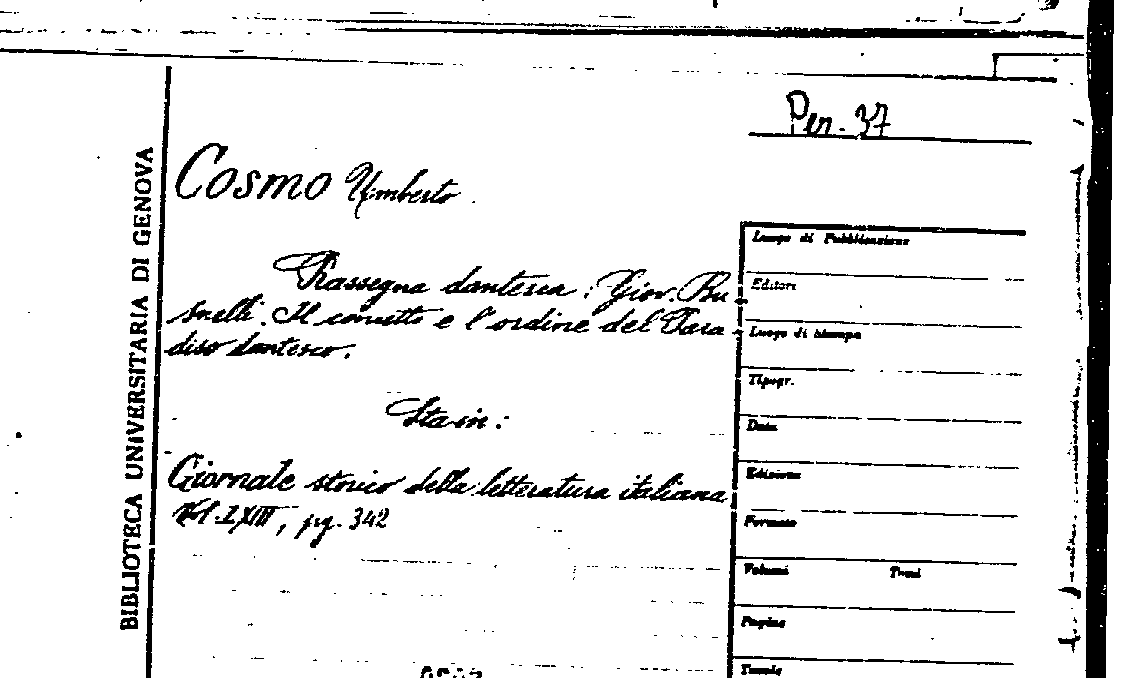 Per. 37
BIBLIOTECA UNIVERSITARIA DI GENOVA
Cosmo Umberto
Rassegna dantesca: Giov. Bu-
snelli. Il concetto e l'ordine del Para-
diso dantesco.
Sta in:
Giornale storico della letteratura italiana
Vol. LXIII, pg. 342
Luogo di Pubblicazione
Editori
Luogo di Stampa
Tipogr.
Data
Edizione
Formato
Volumi Tomi
Pagine
Tavole